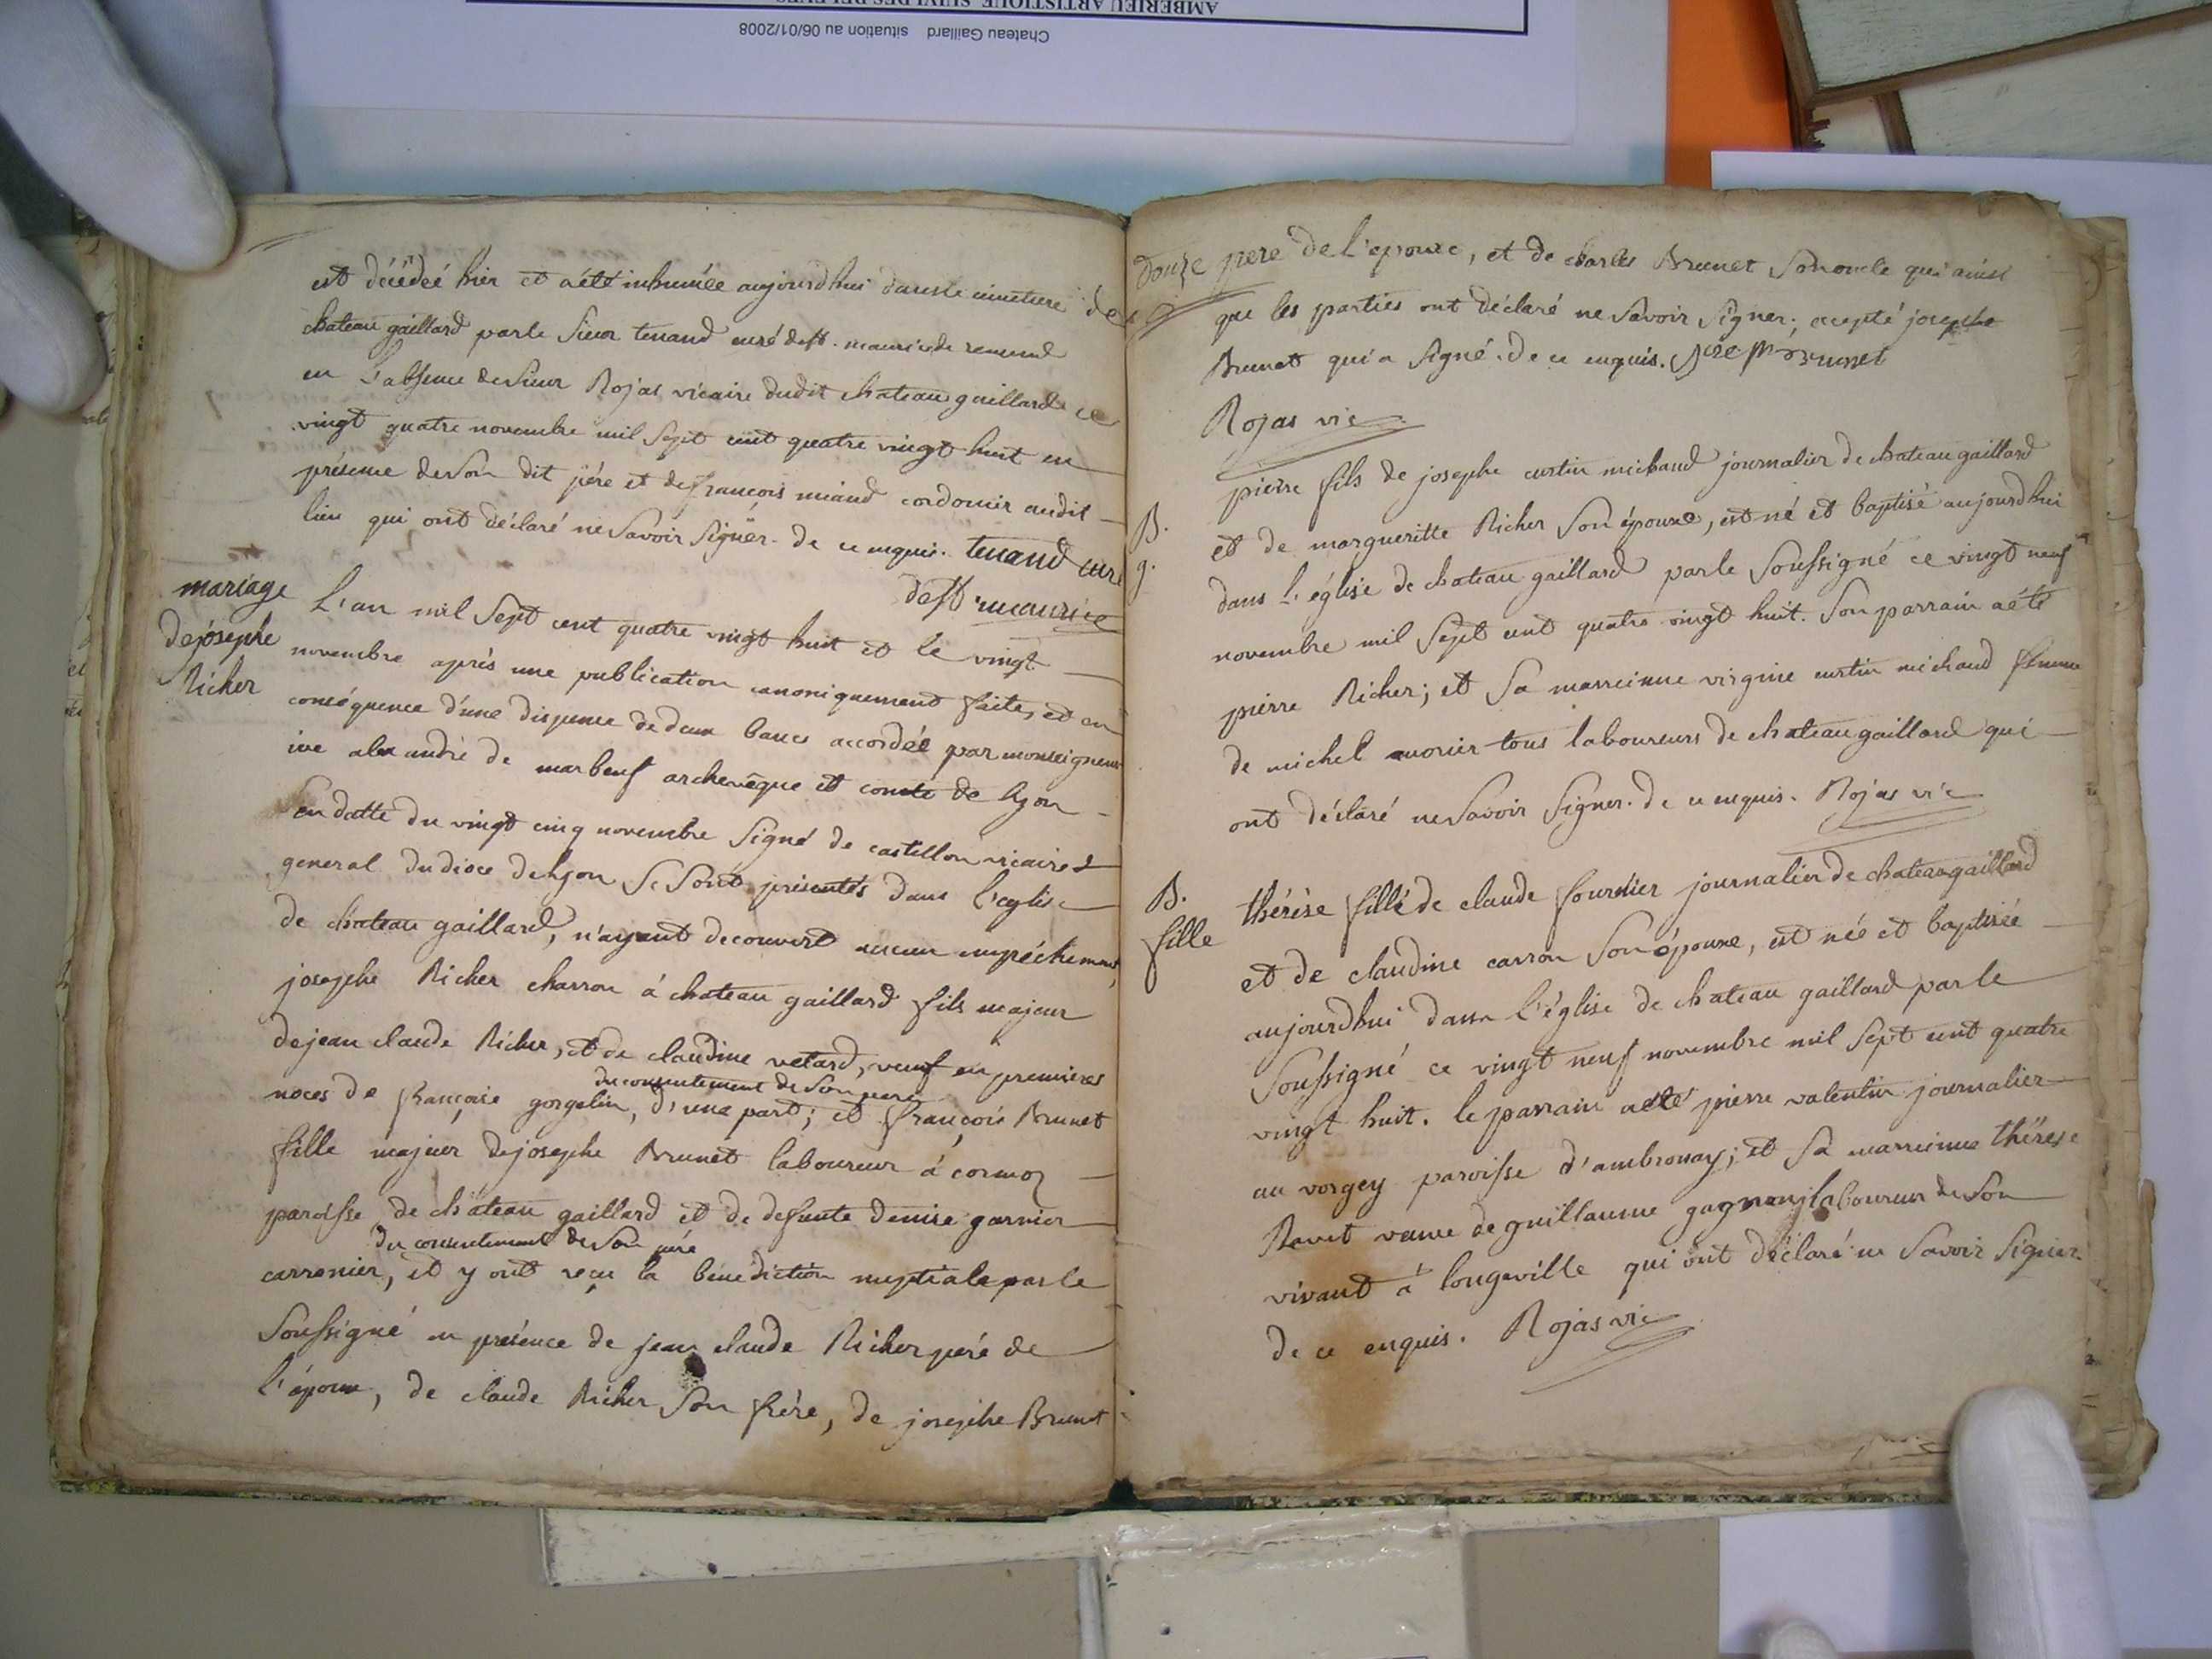 AMBERIEU ARTISTIQUE SUIVI DES RELEVES
Chateau Gaillard situation au 06/01/2008
est décédeé hier et a été inhumée aujourdhui dans le cimetiere de
chateau gaillard par le sieur tenand curé de st. maurice de remend
en l'absence de sieur Rojas vicaire dudit chateau gaillard ce
vingt quatre novembre mil sept cent quatre vingt huit en
présence de son dit pére et de françois miand cordonier audit
lieu qui ont déclaré ne savoir signer. de ce enquis. tenand curé
de st. maurice
mariage
de josephe
Richer
L'an mil sept cent quatre vingt huit et le vingt
novembre aprés une publication canoniquement faite, et en
conséquence d'une dispense de deux bancs accordée par monseigneur
ive alexandre de marbeuf archevêque et comte de lyon
en datte du vingt cinq novembre signé de castillon vicaire
general du dioce de lyon se sont présentés dans l'eglise
de chateau gaillard, n'ayant decouvert aucun empéchement,
josephe Richer charron á chateau gaillard fils majeur
de jean claude Richer, et de claudine vetard, veuf en premieres
du consentement de son pere
noces de françoise gorgelin, d'une part; et françois Brunet
fille majeur de josephe Brunet laboureur á cormoz
paroisse de chateau gaillard et de defunte denise garnier
du consentement de son pére
carronier, et y ont reçu la bénédiction nuptiale par le
soussigné en présence de jean claude Richer peré de
l'époux, de claude Richer son frére, de josephe Brunet
Douze pere de l'epouse, et de charles Brunet son oncle qui ainsi
que les parties ont déclaré ne savoir signer; excepté josephe
Brunet qui a signé. de ce enquis. Brunet
Rojas vic
B.
g.
pierre fils de josephe curtin michaud journalier de chateau gaillard
et de margueritte Richer son épouse, est né et baptisé aujourdhui
dans l'église de chateau gaillard par le soussigné ce vingt neuf
novembre mil sept cent quatre vingt huit. son parrain a été
pierre Richer; et sa marreinne virginie curtin michaud femme
de michel tous laboureurs de chateau gaillard qui
ont déclaré ne savoir signer. de ce enquis. Rojas vic
B.
fille
thérèse fille de claude fournier journalier de chateau gaillard
et de claudine carron son épouse, est née et baptisée
aujourdhui dans l'église de chateau gaillard par le
soussigné ce vingt neuf novembre mil sept cent quatre
vingt huit. le parrain a été pierre valentin journalier
au vorgey paroisse d'ambronay; et sa marreinne thérese
Ravet veuve de guillaume laboureur de son
vivant á longeville qui ont déclaré ne savoir signer.
de ce enquis. Rojas vic